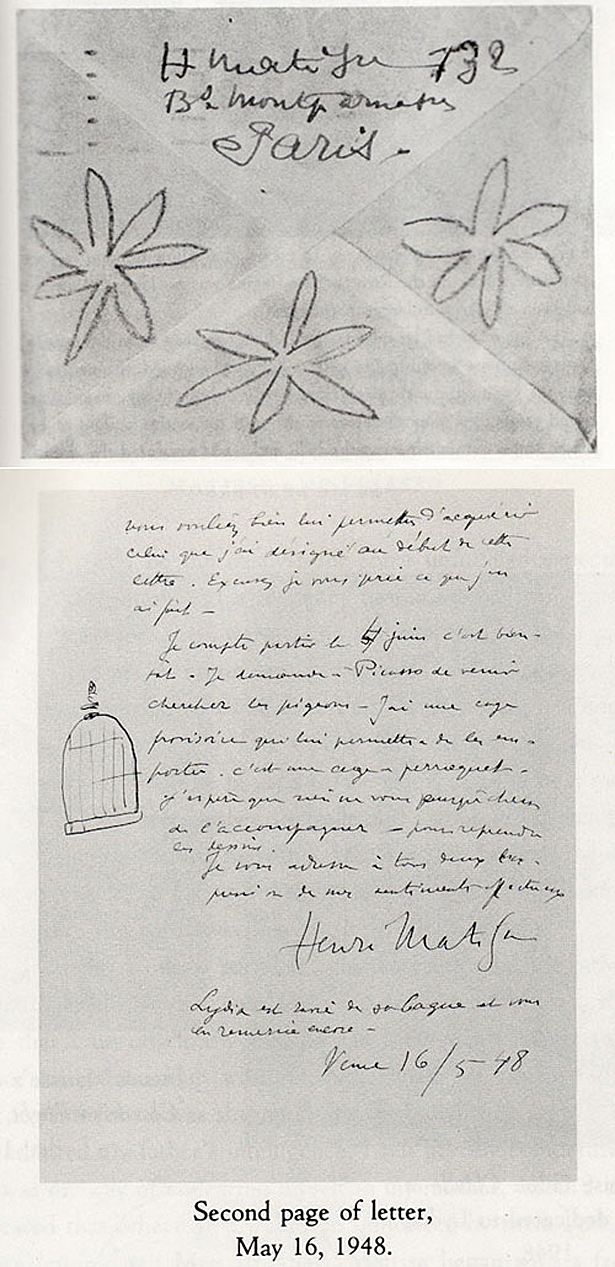 H Matisse 132
Bd Montparnasse
Paris.
vous vouliez bien lui permettre d'acquérir
celui que j'ai désigné au début de cette
lettre. Excusez je vous prie ce que j'en
ai fait –
Je compte partir le 4 juin c'est bien-
tôt. Je demande à Picasso de venir
chercher les pigeons – J'ai une cage
provisoire qui lui permettra de les em-
porter. c'est une cage à perroquet.
J'espère que rien ne vous empêchera
de l'accompagner – pour reprendre
les dessins.
Je vous adresse à tous deux l'ex-
pression de mes sentiments affectueux
Henri Matisse
Lydia est ravie de sa bague et vous
en remercie encore –
Vence 16/5 48
Second page of letter,
May 16, 1948.